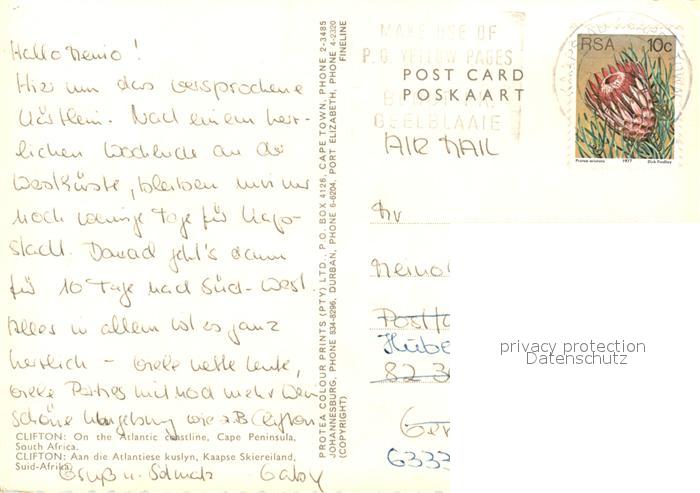 Hallo Heino!
Hier nun das versprochene
Kärtlein. Nach einem herr-
lichen Wochende an der
Westküste, bleiben mir nur
noch wenige Tage für Kap-
stadt. Danach geht's dann
für 10 Tage nach Süd-West.
Alles in allem ist es ganz
herrlich - viele nette Leute,
viele Parties und noch mehr
schöne Umgebung wie z.B. Clifton
CLIFTON: On the Atlantic coastline, Cape Peninsula,
South Africa.
CLIFTON: Aan die Atlantiese kuslyn, Kaapse Skiereiland,
Suid-Afrika.
Gruß u. Schmatz Gaby
PROTEA COLOUR PRINTS (PTY) LTD., P.O. BOX 4126, CAPE TOWN, PHONE 2-3485
JOHANNESBURG, PHONE 834-8296, DURBAN, PHONE 6-6204, PORT ELIZABETH, PHONE 4-2320
(COPYRIGHT) FINELINE
MAKE USE OF
P.O. YELLOW PAGES
POST CARD
POSKAART
GEELBLAAIE
AIR MAIL
RSA 10c
Protea aristata 1977 Dick Findlay
Heino
Postfa
Hübe
82 30
Ger
6333
privacy protection
Datenschutz